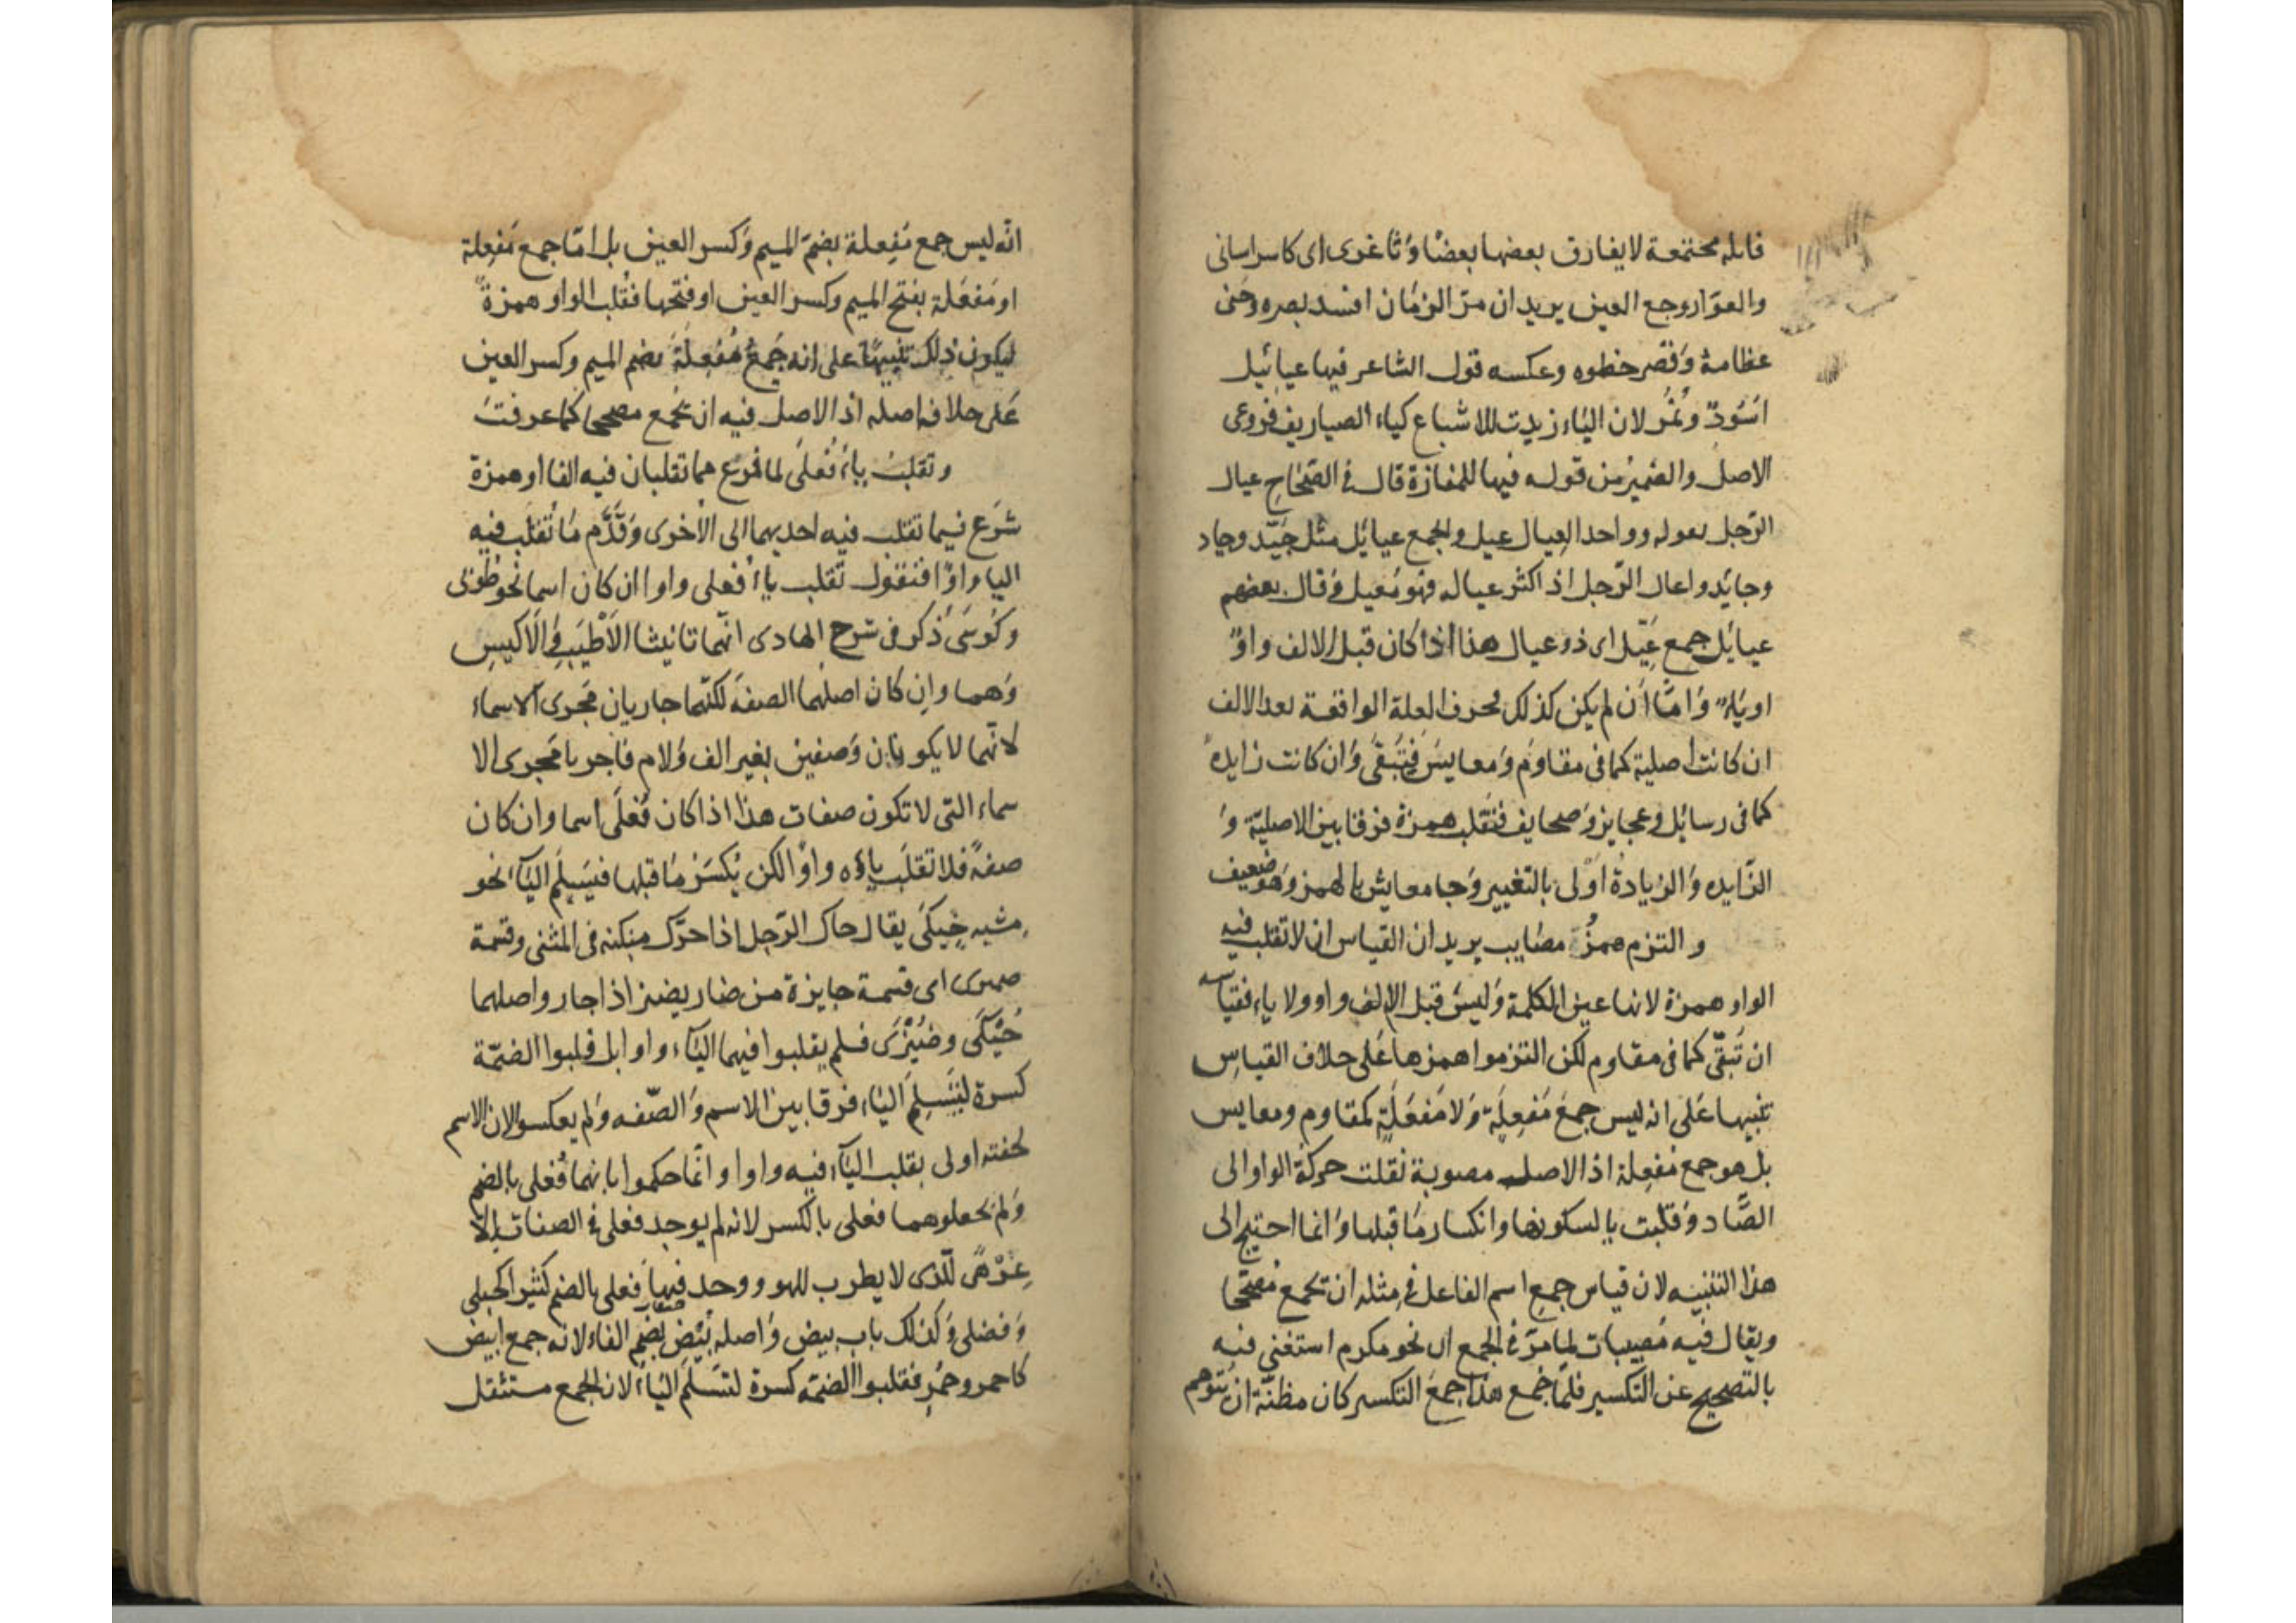 قابله مجتمعة لا يفارق بعضها بعضًا وَثاغرى اى كاسراسانى
والعوّار وجع العين يريد ان مرّ الزمَان افسد بصره وَحنى
عظامهُ وَقصر خطوه وعكسه قول الشاعر فيها عيائيل
اسُودٌ ونُمُر لان اليَاء زيدت للاشباع كياء الصياريف فروعى
الاصل والضميرُ من قوله فيها للمفازة قال فى الصّحَاح عيال
الرّجل يعوله وواحد العِيال عيل والجمع عيايُل مثل جَيّد وجياد
وجايُد واعال الرّجل اذا كثر عياله فهو مُعيل وَقال بعضهم
عيايُل جمع عَيّل اى ذو عيال هذا اذا كان قبل الالف واوٌ
او يَاءٌ وَامَّا اَن لم يكن كذلك فحرف العلة الواقعة بعد الالف
ان كانت اصلية كما فى مقاوم وَمعايسَ فتَبقَى وَان كانت زايدهً
كما فى رسايُل وعجايز وَصحايف فتقلب همزة فرقا بين الاصليّة وَ
الزّايده وَالزيادهُ اوْلى بالتغيير وَجا معايش بالهمز وَهو ضعيف
و التزم همزُ مصايب يريد ان القياس ان لا تقلب فيه
الواو همزة لانها عين الكلمة وَليسَ قبل الالف واو ولا ياء فقياسه
ان تُبقّى كما فى مقاوم لكن التزموا همزها عَلى خلاف القياس
تنبيها عَلى انه ليس جمعَ مَفعِلَة وَلا مَفعَلَةٍ كمقاوم ومعايس
بل هو جمع مُفعِلة اذ الاصل مصوبة نقلت حركة الواو الى
الصَّاد وَقلبت يا لسكونها وانكسار مَا قبلها وَانما احتيج الى
هذا التنبيه لان قياس جمعِ اسم الفاعل فى مثله ان تجمع مُصَحّحا
ويقال فيه مُصيبات لما مَرّ فى الجمع ان نحو مكرم استغنى فيه
بالتصحيح عن التكسير فلمّا جُمع هذا جمعَ التكسير كان مظنّة ان يُتوهم
انّه ليس جمع مُفِعلة بضمّ الميم وَكسر العين بل امّا جمع مَفعِلة
او مَفعَلة بفتح الميم وكسر العين او فتحها فقُلب الواو همزةً
ليكون ذلك تنبيهًا على انه جَمعُ مُفْعِلَةٍ بضم الميم وكسر العين
عَلى خلاف اصله اذ الاصل فيه ان يُجمع مصححا كما عرفتَ
وتقلبُ ياءُ فُعلَى لما فرع مما تقلبان فيه الفا او همزة
شرَع فيما تقلب فيه احديهما الى الاُخرى وَقَدَّم مَا تُقلب فيه
اليا واوًا فنقول تقلب ياءُ فُعلى واوا ان كان اسما نحو طُوبى
وكُوسَى ذُكر فى شرح الهادى انّهما تانيثا الاَطْيَب وَالاَكيسِ
وَهما وإن كان اصلهما الصفهَ لكنّهما جاريان مَجرى الاسماء
لانّهما لا يكونان وَصفين بغير الف وَلام فاُجريا مَجرى الا
سماء التى لا تكون صفات هذا اذا كان فُعلَى اسما وان كان
صفهً فلا تقلَب ياؤه واوًا لكن يُكسَرُ مَا قبلها فيَسلَم اليَاء نحو
مشيه حِيكَى يقال حاك الرّجل اذا حرّك منكبه فى المشى وقسمة
ضيزى اى قسمة جايزة من ضار يضيز اذا جار واصلهما
حُيْكَى وضُيْزَى فلم يقلبوا فيهما اليَاء واوا بل قلبوا الضمّة
كسرة لِتَسلَمَ اليَاء فرقا بين الاسم وَالصّفه وَلم يعكسوا لان الاسم
لخفته اولى بقلب اليَاء فيه واوا وانّما حكموا بانهما فُعلى بالضم
وَلم يجعلوهما فعلى بالكسر لانه لم يوجد فعلى فى الصفات الا
عِزْهًى للّذى لا يطرب للهو ووجد فيها فُعلى بالضم كثيرا كحبلى
وَفضلى وَكذلك باب بيض وَاصله بُيْض بضم الفاء لانه جمع ابيض
كاحمر وحُمْرٍ فقلبوا الضمّه كسرة لتسلَمَ اليَاءُ لان الجمع مستثقل